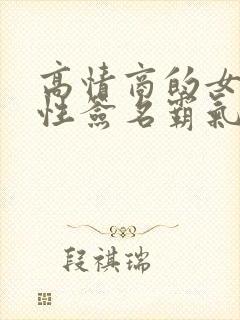 高情商的女
性簽名霸氣
段祺瑞